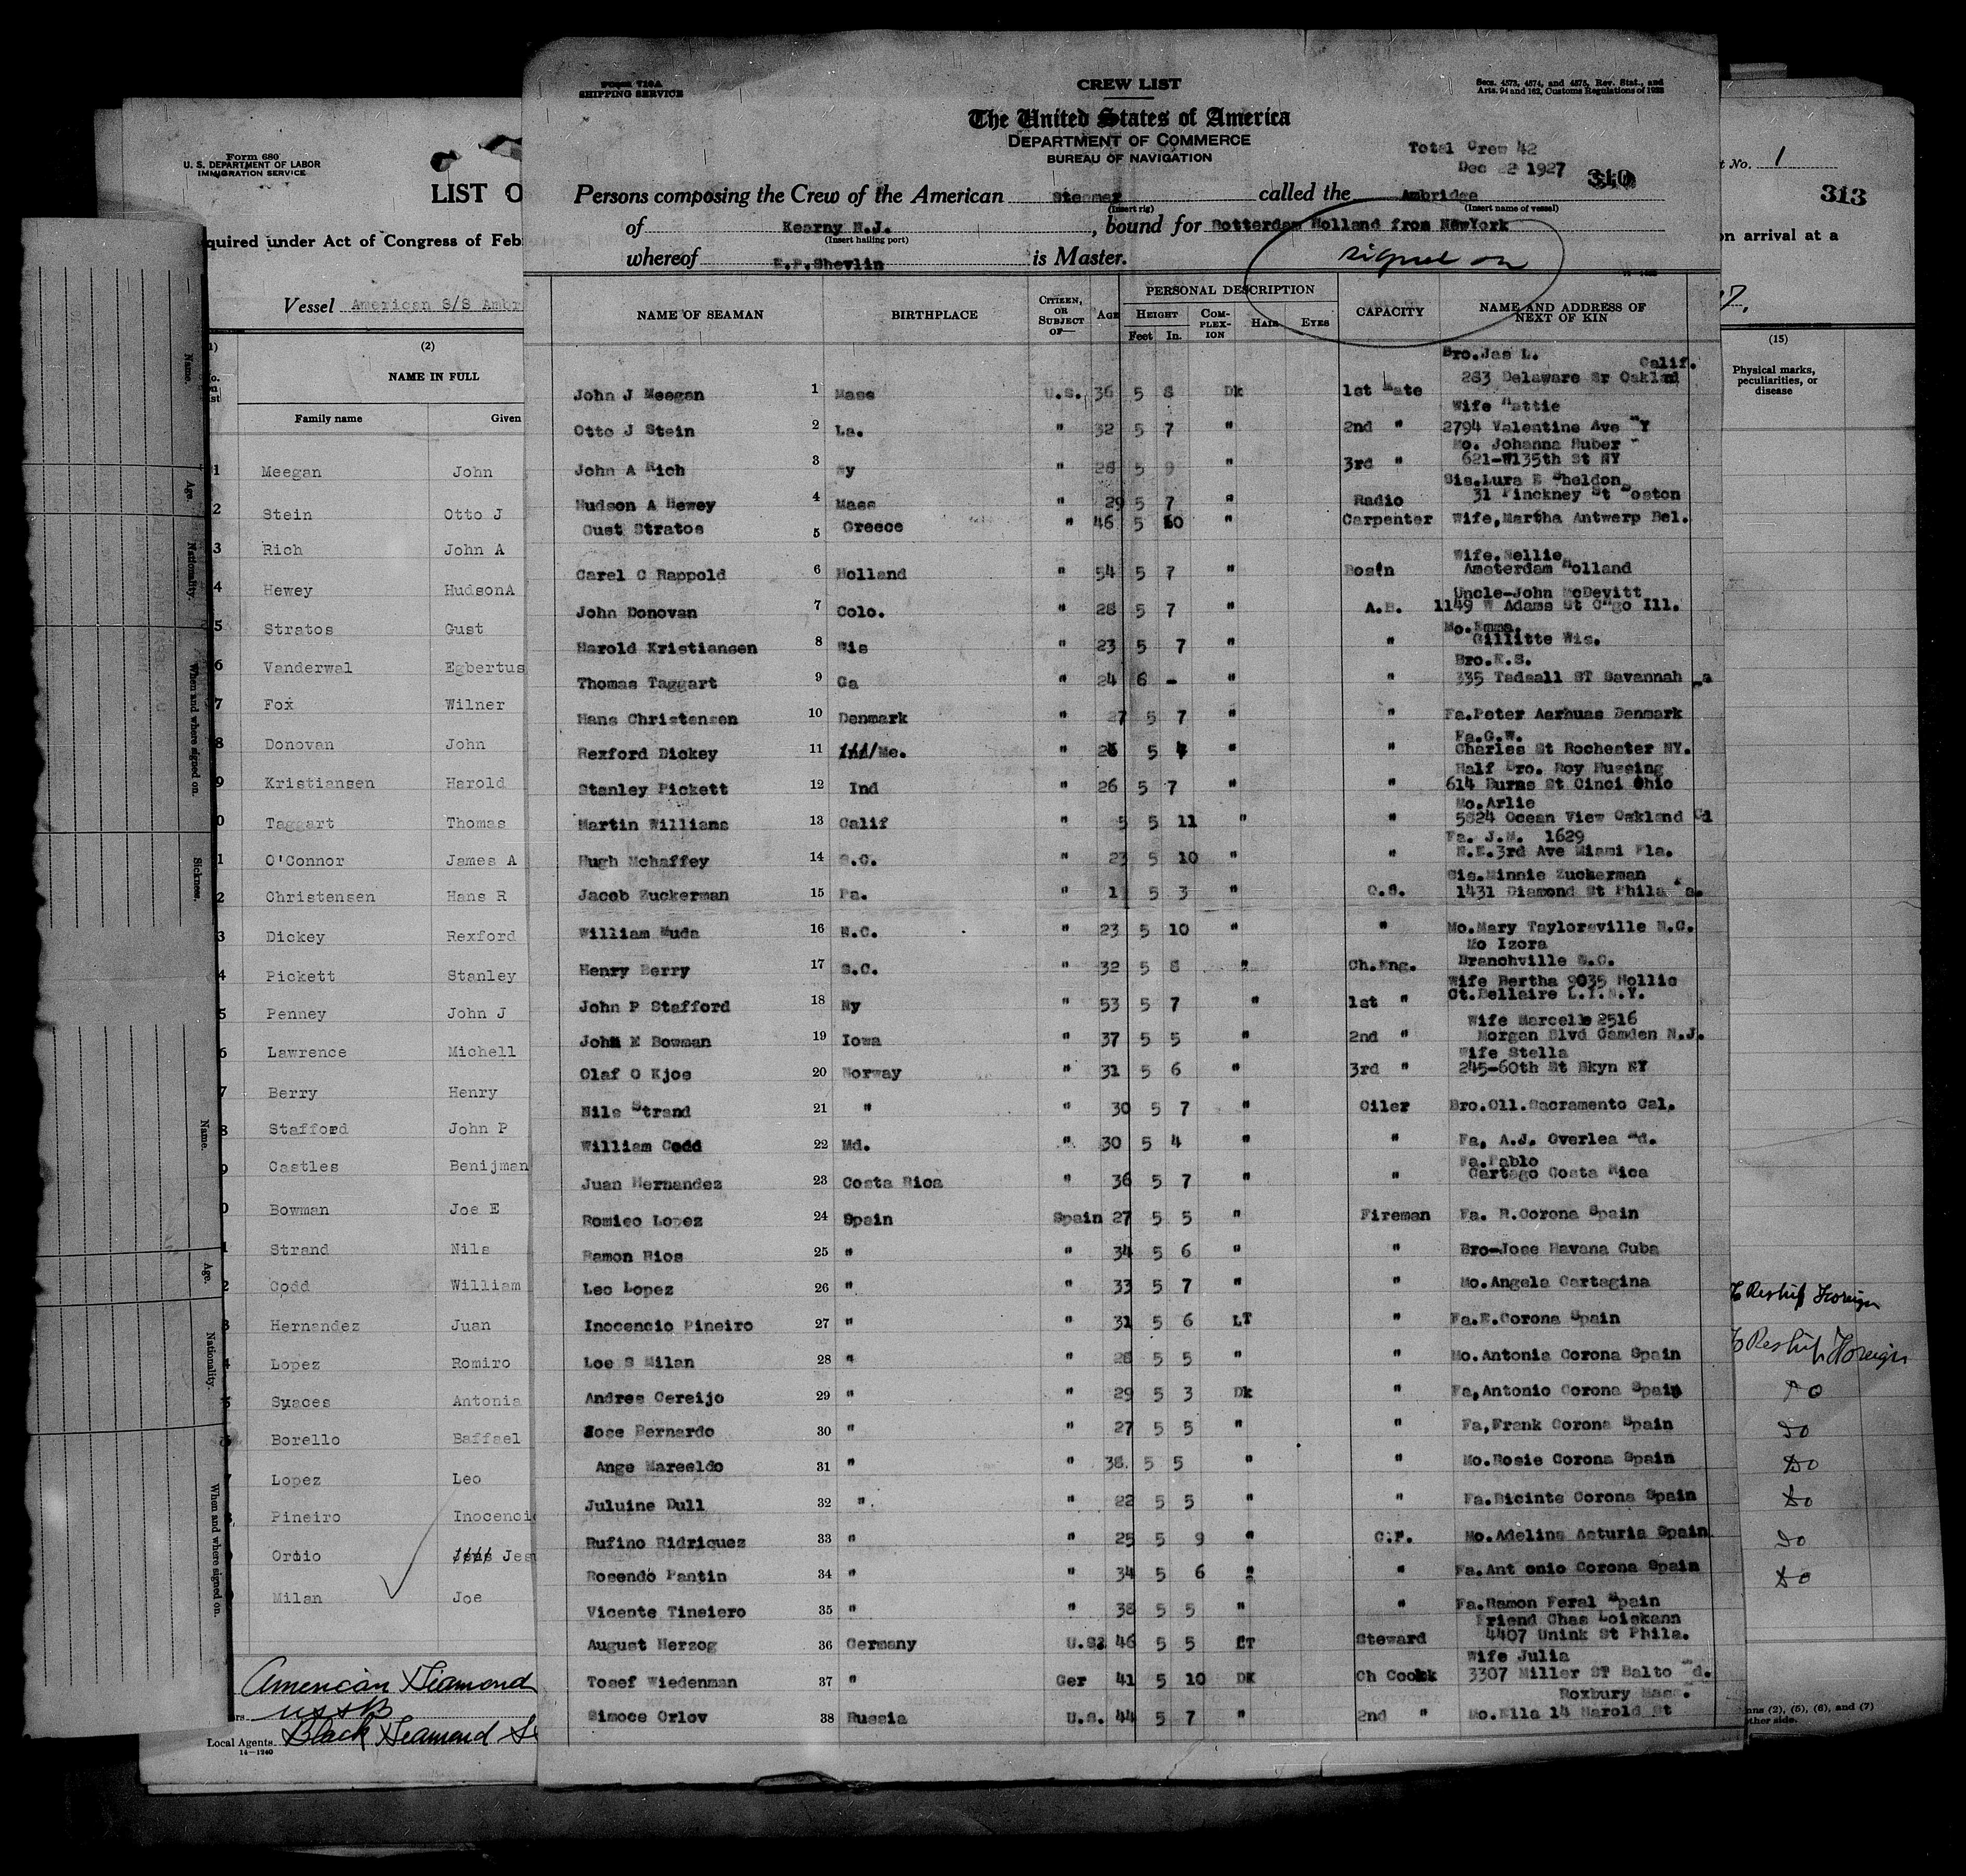 Form 710A
SHIPPING SERVICE
CREW LIST
Secs. 4573, 4574, and 4575, Rev. Stat., and
Arts. 94 and 162, Customs Regulations of 1923
The United States of America
DEPARTMENT OF COMMERCE
BUREAU OF NAVIGATION
Total Crew 42
Dec 22 1927
310
Persons composing the Crew of the American Steamer called the Ambridge
(Insert rig) (Insert name of vessel)
of Kearny N.J. , bound for Rotterdam Holland from NewYork
(Insert hailing port)
whereof E.P.Shevlin is Master.
signed on
NAME OF SEAMAN BIRTHPLACE CITIZEN, OR SUBJECT OF— AGE PERSONAL DESCRIPTION CAPACITY NAME AND ADDRESS OF NEXT OF KIN
HEIGHT COM-PLEX-ION HAIR EYES
Feet In.
Bro.Jas L. Calif.
John J Meegan 1 Mass U.S. 36 5 8 Dk 1st Mate 283 Delaware Sr Oakland
Wife Hattie
Otto J Stein 2 La. " 32 5 7 " 2nd " 2794 Valentine Ave NY
Mo. Johanna Huber
John A Rich 3 Ny " 28 5 9 " 3rd " 621-W135th St NY
Sis.Lura E Sheldon
Hudson A Hewey 4 Mass " 29 5 7 " Radio 31 Pinckney St Boston
Gust Stratos 5 Greece " 46 5 10 " Carpenter Wife,Martha Antwerp Bel.
Wife.Nellie
Carel C Rappold 6 Holland " 54 5 7 " Bosin Amsterdam Holland
Uncle-John McDevitt
John Donovan 7 Colo. " 28 5 7 " A.B. 1149 W Adams St C"go Ill.
Mo.Emma.
Harold Kristiansen 8 Wis " 23 5 7 " " Gillitte Wis.
Bro.E.S.
Thomas Taggart 9 Ga " 24 6 - " " 335 Tadsall ST Savannah Ga
Hans Christensen 10 Denmark " 27 5 7 " " Fa.Peter Aarhuas Denmark
Fa.G.W.
Rexford Dickey 11 Me. " 5 4 " " Charles St Rochester NY.
Half Bro. Roy Hussing
Stanley Pickett 12 Ind " 26 5 7 " " 614 Burns St Cinci Ohio
Mo.Arlie
Martin Williams 13 Calif " 5 5 11 " " 5824 Ocean View Oakland Cl
Fa. J.M. 1629
Hugh Mchaffey 14 S.C. " 23 5 10 " " N.E.3rd Ave Miami Fla.
Sis.Minnie Zuckerman
Jacob Zuckerman 15 Pa. " 1 5 3 " O.S. 1431 Diamond St Phila Pa.
William Muda 16 N.C. " 23 5 10 " " Mo.Mary Taylorsville N.C.
Mo Izora
Henry Berry 17 S.C. " 32 5 8 " Ch.Eng. Branchville S.C.
Wife Bertha 9035 Hollis
John P Stafford 18 Ny " 53 5 7 " 1st " Ct.Bellaire L.I.N.Y.
Wife Marcelle 2516
John E Bowman 19 Iowa " 37 5 5 " 2nd " Morgan Blvd Camden N.J.
Wife Stella
Olaf O Kjos 20 Norway " 31 5 6 " 3rd " 245-60th St Bkyn NY
Nils Strand 21 " " 30 5 7 " Oiler Bro.Oll.Sacramento Cal.
William Codd 22 Md. " 30 5 4 " " Fa, A.J. Overlea Md.
Fa.Pablo
Juan Hernandez 23 Costa Rica " 36 5 7 " " Cartago Costa Rica
Romico Lopez 24 Spain Spain 27 5 5 " Fireman Fa. R.Corona Spain
Ramon Rios 25 " " 34 5 6 " " Bro-Jose Havana Cuba
Leo Lopez 26 " " 33 5 7 " " Mo.Angela Cartagina
Inocencio Pineiro 27 " " 31 5 6 LT " Fa.E.Corona Spain
Loe S Milan 28 " " 28 5 5 " " Mo.Antonia Corona Spain
Andres Cereijo 29 " " 29 5 3 Dk " Fa,Antonio Corona Spain
Jose Bernardo 30 " " 27 5 5 " " Fa,Frank Corona Spain
Ange Mareeldo 31 " " 38. 5 5 " " Mo.Rosie Corona Spain
Juluine Dull 32 " " 22 5 5 " " Fa.Bicinte Corona Spain
Rufino Ridriquez 33 " " 25 5 9 " C.P. Mo.Adelina Asturia Spain
Rosendo Pantin 34 " " 34 5 6 " " Fa.Ant onio Corona Spain
Vicente Tineiero 35 " " 38 5 5 " " Fa.Ramon Feral Spain
Friend Chas Loiskann
August Herzog 36 Germany U.S. 46 5 5 LT Steward 4407 Unink St Phila.
Wife Julia
Tosef Wiedenman 37 " Ger 41 5 10 DK Ch Coohk 3307 Miller ST Balto Md.
Roxbury Mass.
Simoce Orlov 38 Russia U.S. 44 5 7 " 2nd " Mo.Ella 14 Harold St
Form 680
U. S. DEPARTMENT OF LABOR
IMMIGRATION SERVICE
LIST O
quired under Act of Congress of Feb
Vessel American S/S Ambr
(2)
NAME IN FULL
Family name Given
1 Meegan John
2 Stein Otto J
3 Rich John A
4 Hewey HudsonA
5 Stratos Gust
6 Vanderwal Egbertus
7 Fox Wilner
8 Donovan John
9 Kristiansen Harold
0 Taggart Thomas
1 O'Connor James A
2 Christensen Hans R
3 Dickey Rexford
4 Pickett Stanley
5 Penney John J
6 Lawrence Michell
7 Berry Henry
8 Stafford John P
Castles Benijman
0 Bowman Joe E
Strand Nils
2 Codd William
3 Hernandez Juan
4 Lopez Romiro
5 Suaces Antonia
Borello Baffael
7 Lopez Leo
Pineiro Inocenci
Ordio Jes
Milan Joe
American Diamond
USSB
Local Agents Black Diamond
14—1240
t No. 1
313
on arrival at a
7,
(15)
Physical marks, peculiarities, or disease
To Reship Foreign
To Reship Foreign
Do
Do
Do
Do
Do
Do
ns (2), (5), (6), and (7)
ther side.
Name.
Age.
Nationality.
When and where signed on.
Sickness.
Name.
Age.
Nationality.
When and where signed on.